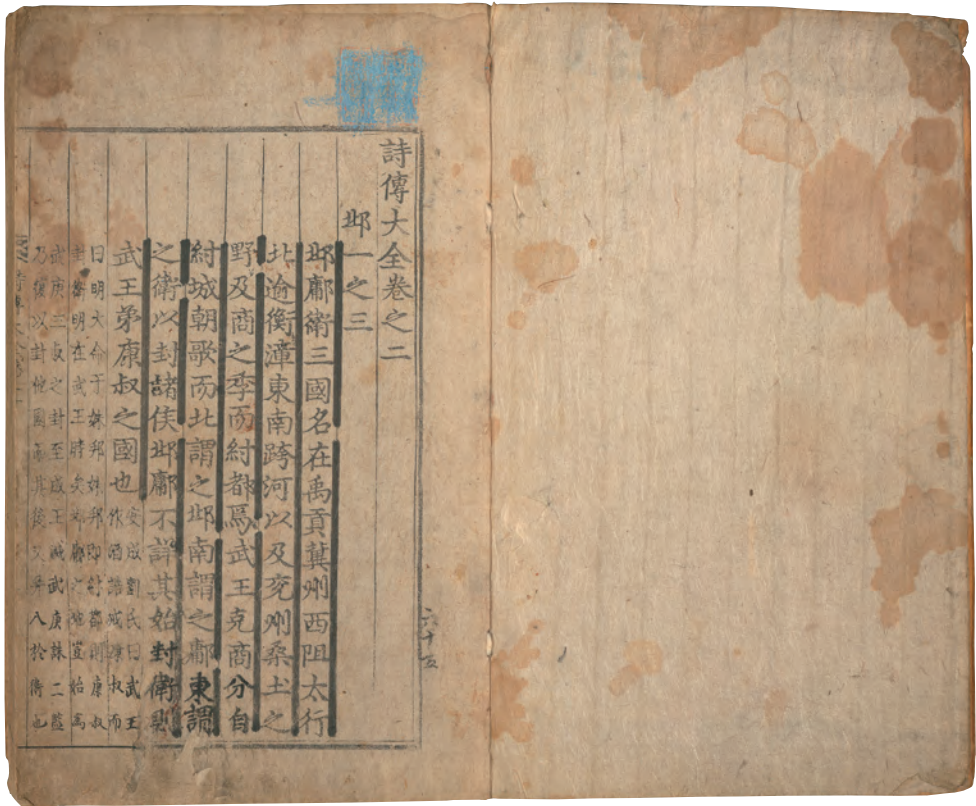 詩傳大全卷之二
邶一之三
邶鄘衛三國名在禹貢冀州西阻太行
北逾衡漳東南跨河以及兗州桑土之
野及商之季而紂都焉武王克商分自
紂城朝歌而北謂之邶南謂之鄘東謂
之衛以封諸侯邶鄘不詳其始封衛則
武王弟康叔之國也
安成劉氏曰武王
作酒誥戒康叔而
曰明大命于妹邦妹邦即紂都則康叔
封衛明在武王時矣邶鄘之地豈始爲
武庚三叔之封至成王滅武庚誅二監
乃復以封他國而其後又幷入於衛也
六十五